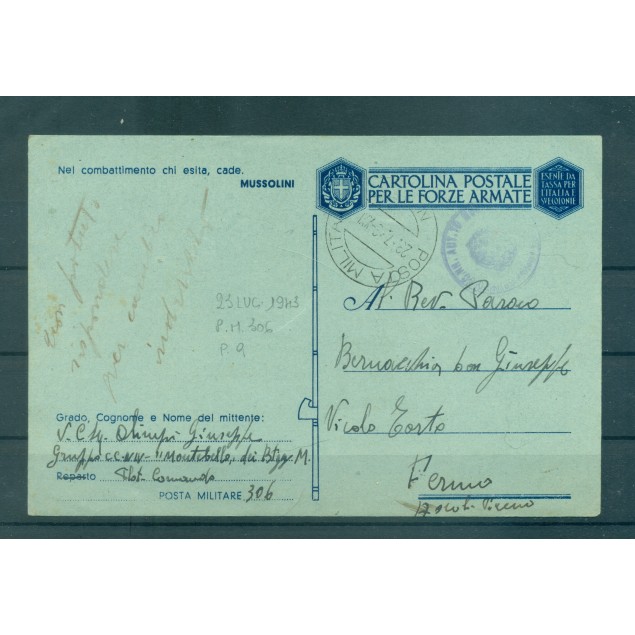 Nel combattimento chi esita, cade.
MUSSOLINI
CARTOLINA POSTALE
PER LE FORZE ARMATE
ESENTE DA
TASSA PER
L'ITALIA E
SUE COLONIE
POSTA MILITARE
23 LUG. 1943
P.M. 306
P. 9
Al Rev. Parroco
Bernacchia don Giuseppe
Vicolo Torto
Fermo
Grado, Cognome e Nome del mittente:
V. Csq. Olimpi Giuseppe
Gruppo CC.NN. "Montebello" di Btgg. M.
Reparto Plot. Comando
POSTA MILITARE 306